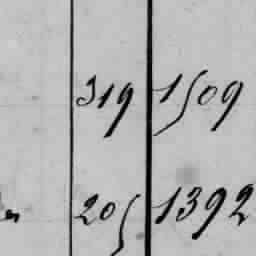 319 1509
205 1392